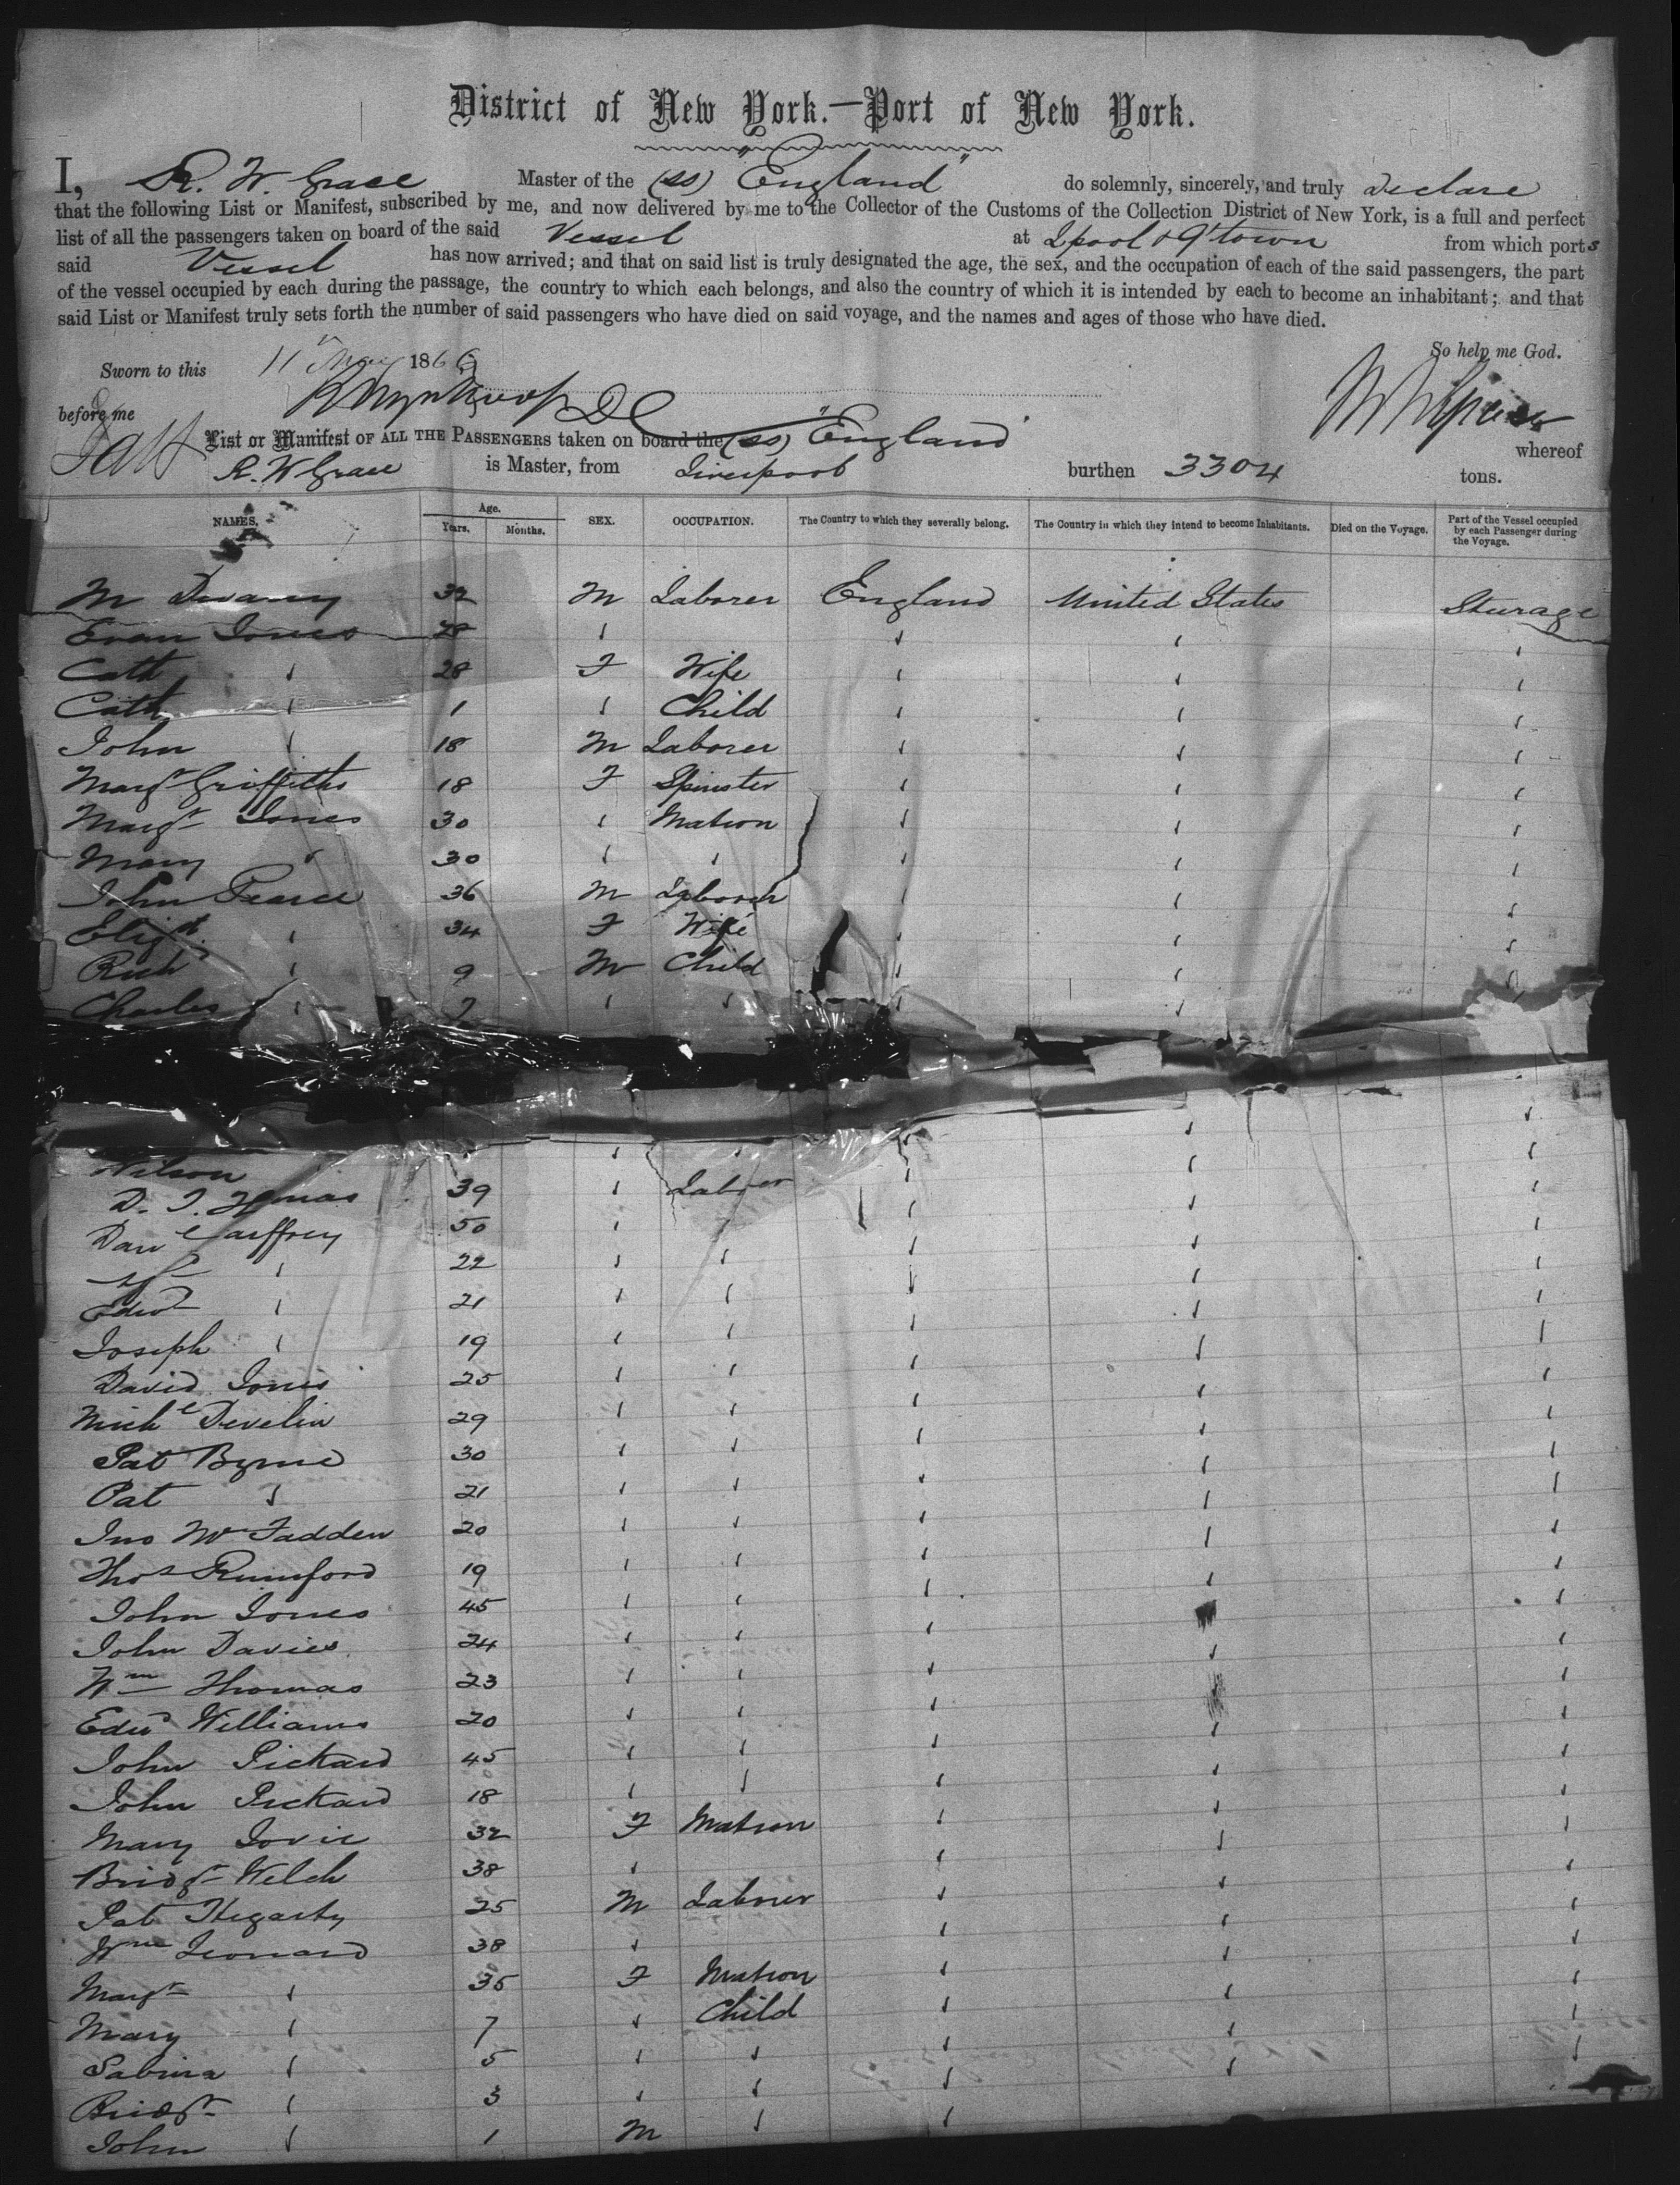 District of New York.—Port of New York.
I, R. W. Grace Master of the (ss) "England" do solemnly, sincerely, and truly declare
that the following List or Manifest, subscribed by me, and now delivered by me to the Collector of the Customs of the Collection District of New York, is a full and perfect
list of all the passengers taken on board of the said Vessel at Lpool & Q'town from which ports
said Vessel has now arrived; and that on said list is truly designated the age, the sex, and the occupation of each of the said passengers, the part
of the vessel occupied by each during the passage, the country to which each belongs, and also the country of which it is intended by each to become an inhabitant; and that
said List or Manifest truly sets forth the number of said passengers who have died on said voyage, and the names and ages of those who have died.
So help me God.
Sworn to this 11 May 1866
before me
List or Manifest OF ALL THE PASSENGERS taken on board the (ss) "England" whereof
R. W Grace is Master, from Liverpool burthen 3304 tons.
NAMES. Age. Years. Months. SEX. OCCUPATION. The Country to which they severally belong. The Country in which they intend to become Inhabitants. Died on the Voyage. Part of the Vessel occupied by each Passenger during the Voyage.
M 32 M Laborer England United States Sturage
Evan Jones 28
Cath 28 F Wife
Cath 1 Child
John 18 M Laborer
Margt Griffiths 18 F Spinster
Margt Jones 30 Matron
Mary 30
John Pearce 36 M Laborer
Elizth 34 F Wife
Richd 9 M Child
Charles 7
Wilson
D. J. 39 Laborer
Danl 50
22
Edwd 21
Joseph 19
David Jones 25
Michl Develin 29
Pat Byrne 30
Pat 21
Jno McFadden 20
Thos Rumford 19
John Jones 45
John Davies 24
Wm Thomas 23
Edwd Williams 20
John Pickard 45
John Pickard 18
Mary 32 F Matron
Bridgt Welch 38
Pat Hegarty 25 M Laborer
Wm Leonard 38
Margt 35 F Matron
Mary 7 Child
Sabina 5
Bridgt 3
John 1 M